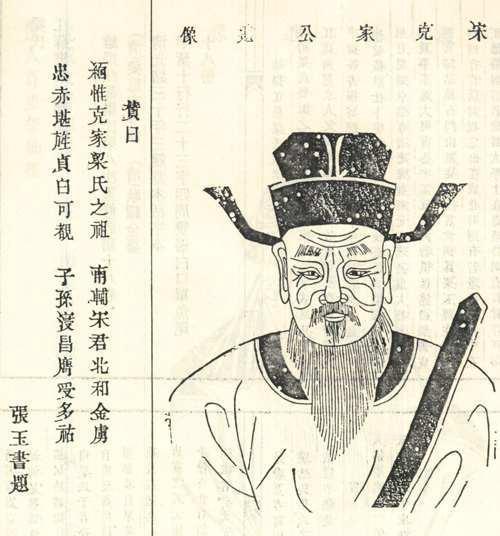 宋克家公像
贊曰
緬惟克家梁氏之祖 南輔宋君北和金虜
忠赤堪旌貞白可覩 子孫寖昌膺受多祜
張玉書題